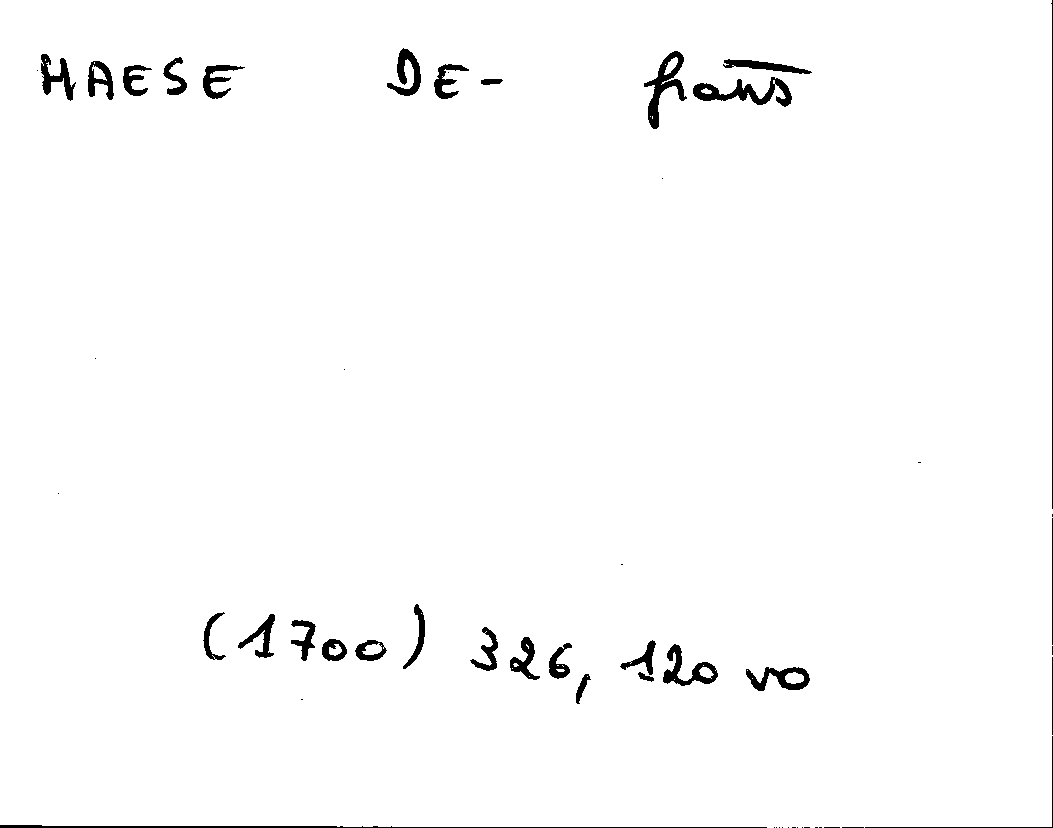 HAESE DE- frans
(1700) 326, 120 vo